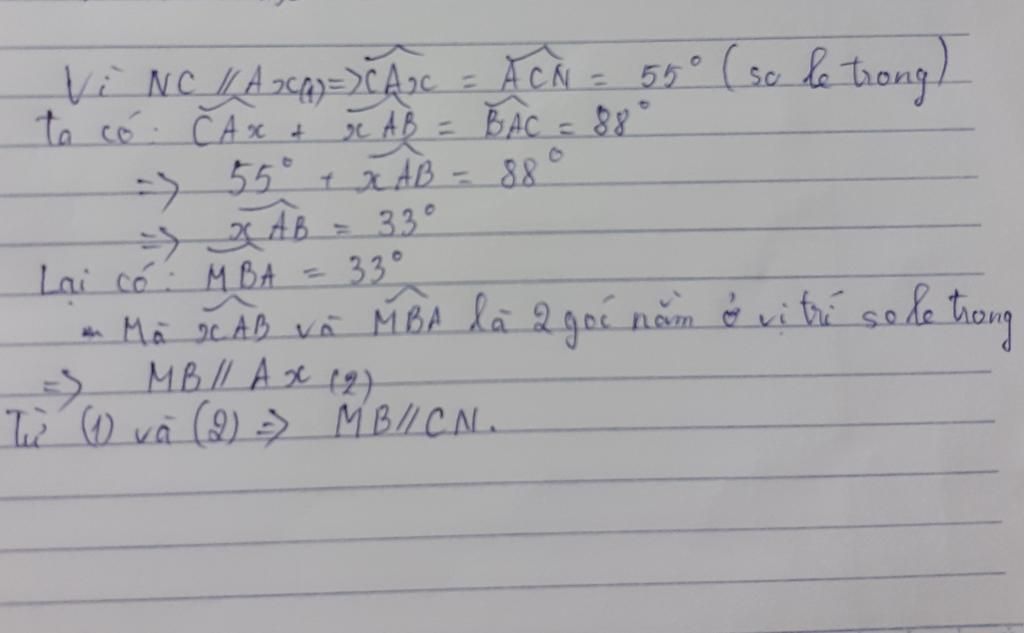 Vì NC // Ax(1) => CAx = ACN = 55° (so le trong)
ta có: CAx + xAB = BAC = 88°
=> 55° + xAB = 88°
=> xAB = 33°
Lại có: MBA = 33°
- Mà xAB và MBA là 2 góc nằm ở vị trí so le trong
=> MB // Ax (2)
Từ (1) và (2) => MB // CN.